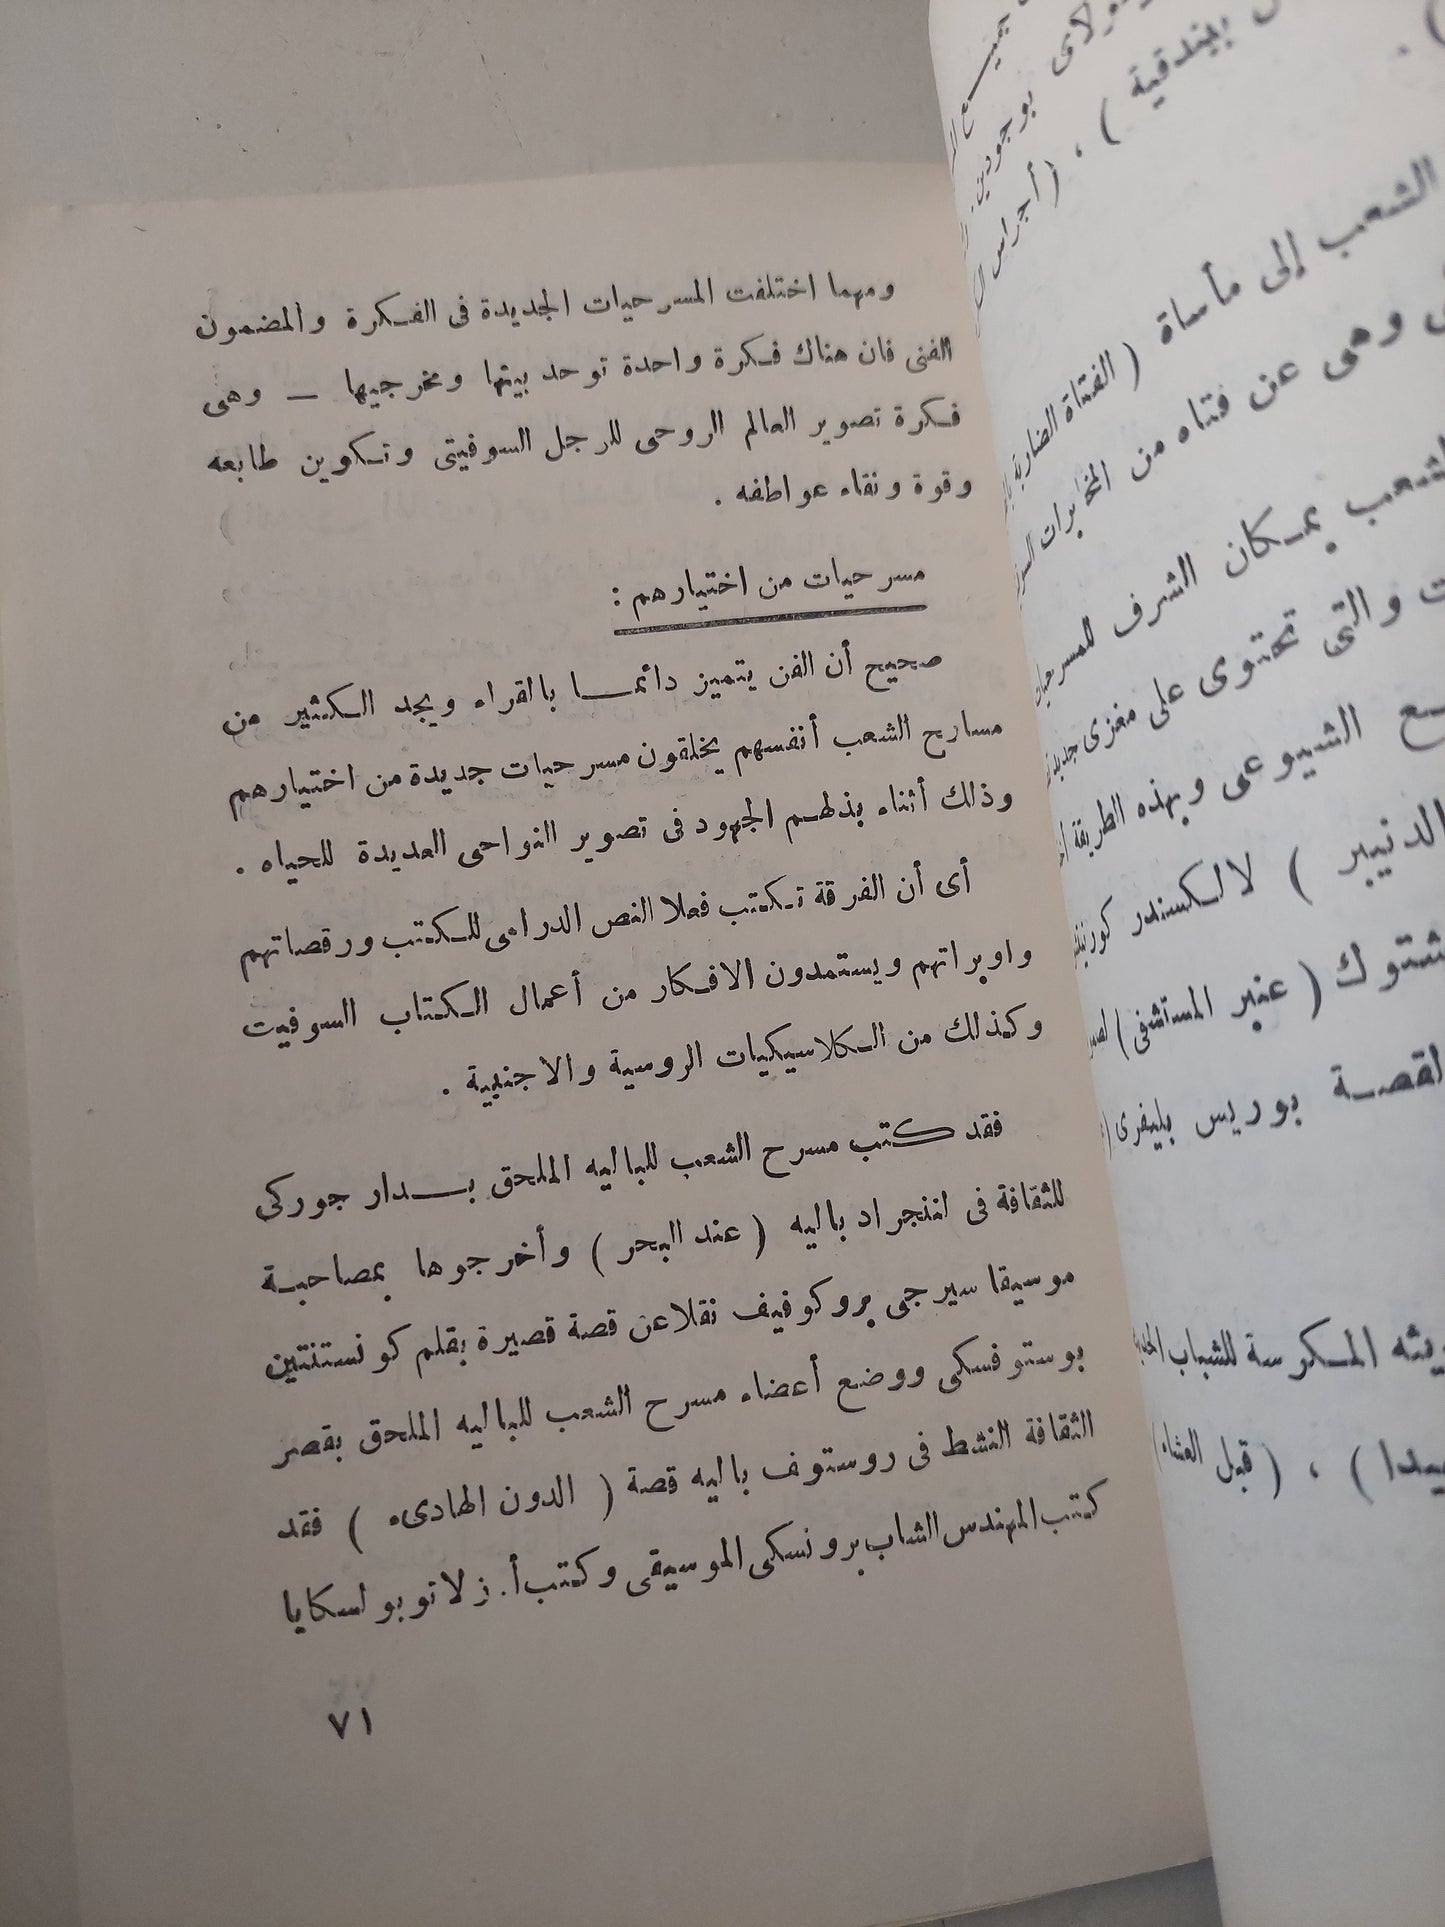 ومهما اختلفت المسرحيات الجديدة فى الفكرة والمضمون
الفنى فان هناك فكرة واحدة توحد بينها ومخرجيها — وهى
فكرة تصوير العالم الروحى للرجل السوفيتى وتكوين طابعه
وقوة ونقاء عواطفه .
مسرحيات من اختيارهم :
صحيح أن الفن يتميز دائما بالقراء ويجد الكثير من
مسارح الشعب أنفسهم يخلقون مسرحيات جديدة من اختيارهم
وذلك أثناء بذلهم الجهود فى تصوير النواحى العديدة للحياه .
أى أن الفرقة تكتب فعلا النص الدرامى للكتب ورقصاتهم
واوبراتهم ويستمدون الافكار من أعمال الكتاب السوفيت
وكذلك من الكلاسيكيات الروسية والاجنبية .
فقد كتب مسرح الشعب للباليه الملحق بدار جوركى
للثقافة فى لننجراد باليه ( عند البحر ) وأخرجوها بمصاحبة
موسيقا سيرجى بروكوفيف نقلا عن قصة قصيرة بقلم كونستنتين
بوستوفسكى ووضع أعضاء مسرح الشعب للباليه الملحق بقصر
الثقافة النشط فى روستوف باليه قصة ( الدون الهادىء ) فقد
كتب المهندس الشاب برونسكى الموسيقى وكتب أ. زلاتوبولسكايا
٧١
جميع
بوجودين
ببندقية ) ، ( أجراس
الشعب إلى مأساة ( الفتاة الضاربة
وهى عن فتاه من المخابرات
بمكان الشرف للمسرحيات
والتى تحتوى على مغزى جديد
الشيوعى وبهذه الطريقة
الدنيبر ) لالكسندر
( عنبر المستشفى )
بوريس بليفرى
المكرسة للشباب
) ، ( قبل العشاء )